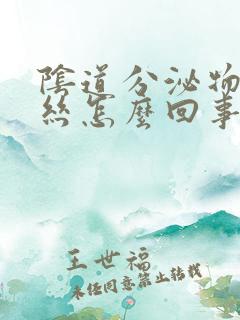 陰道分泌物
絲怎麼回事
王世福
未經同意禁止轉載